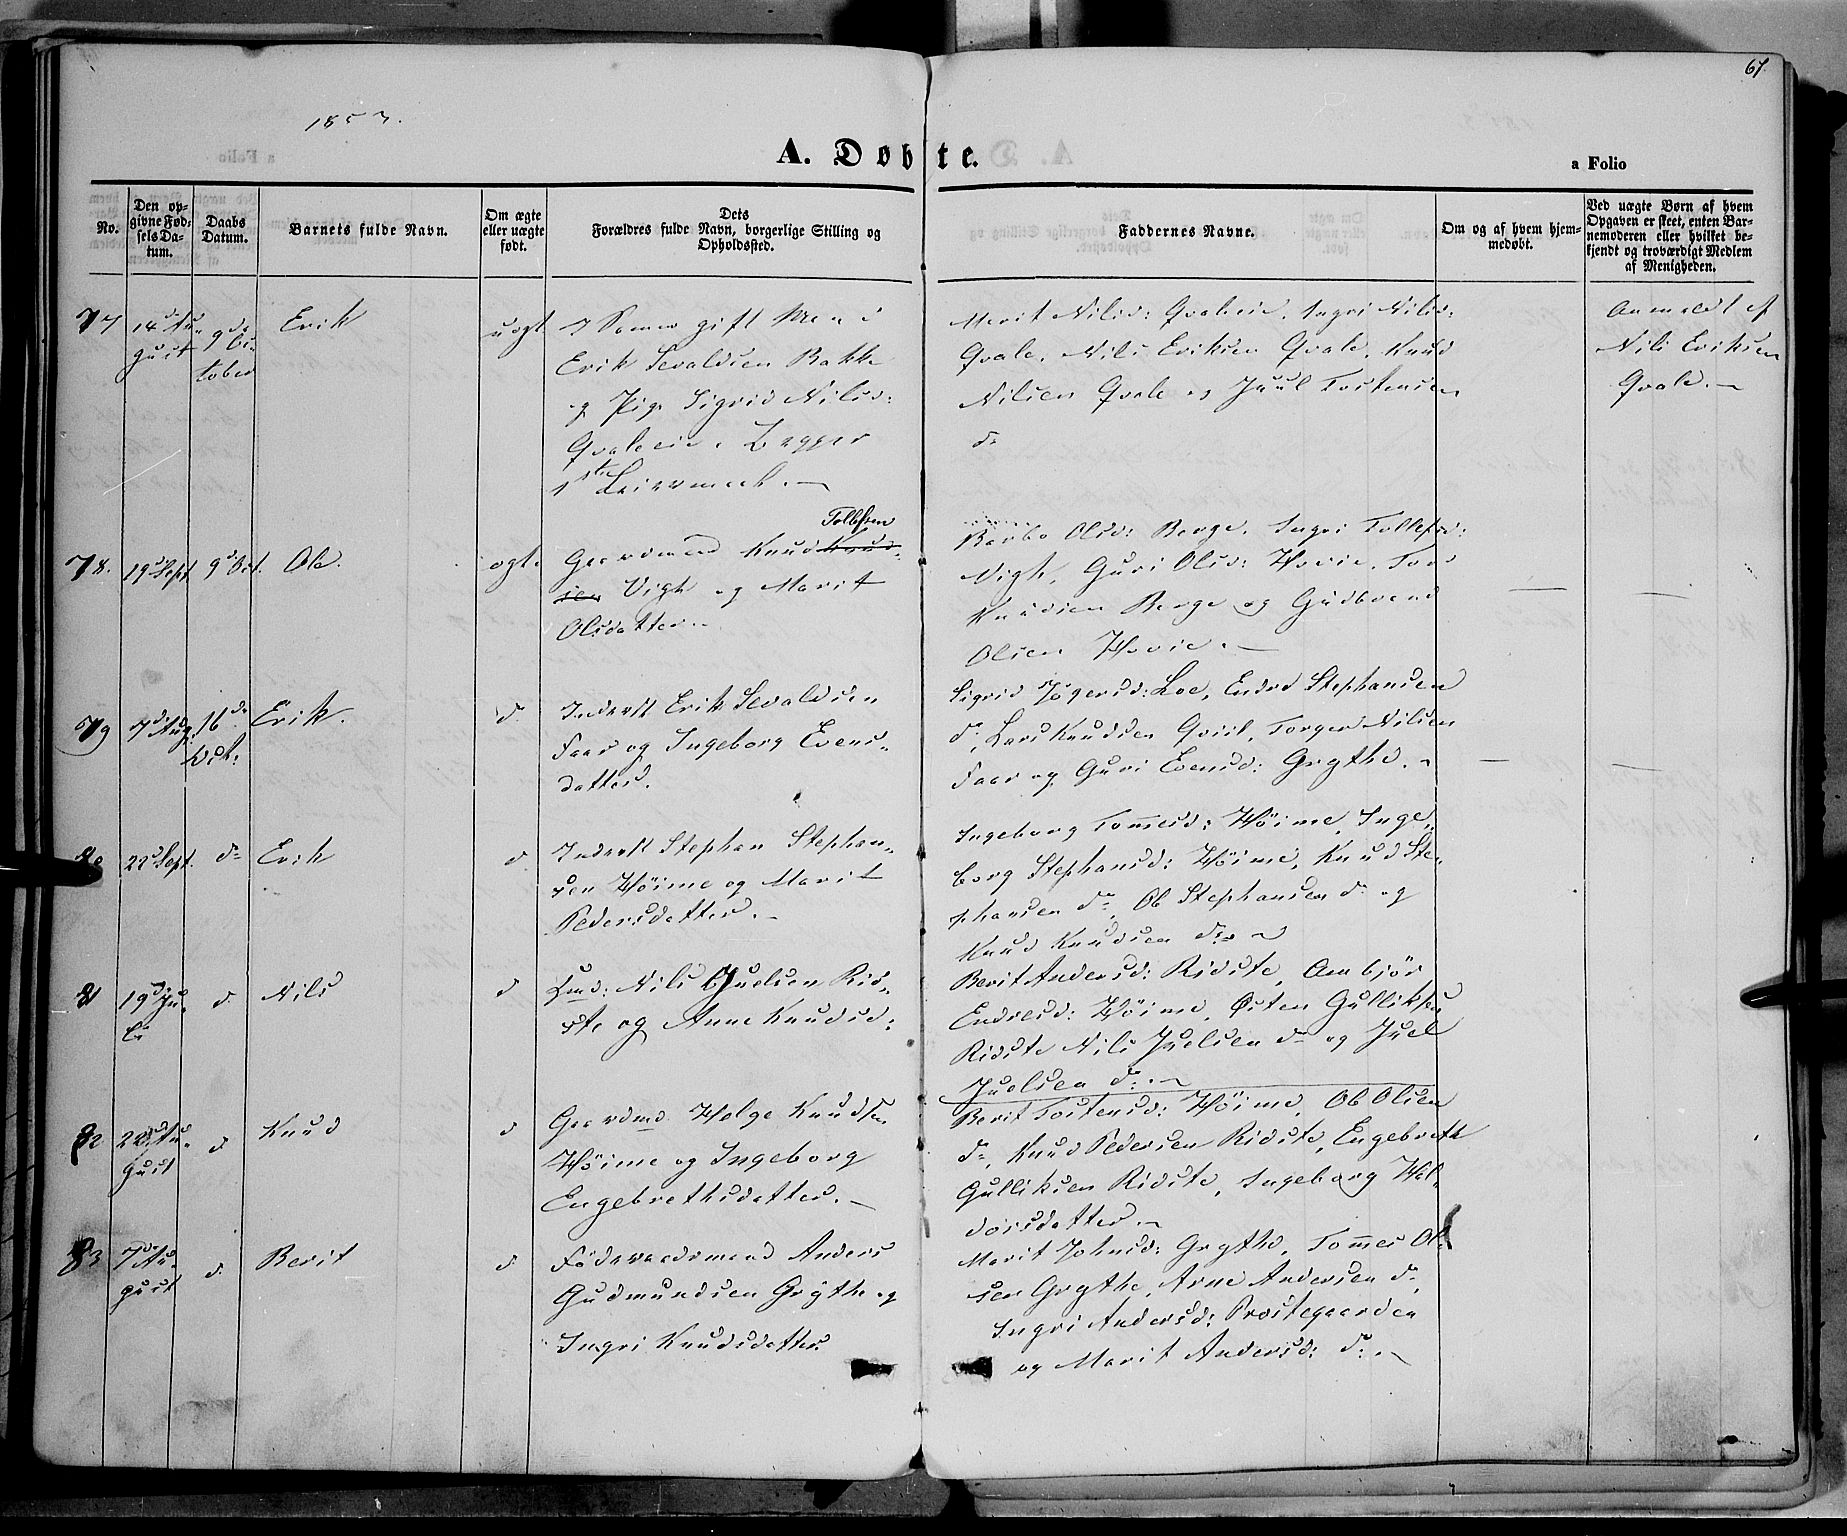 67.
1853.
A. Døbte.
a Folio
No.
Den op-
givne Fød-
sels Da-
tum.
Daabs
Datum.
Barnets fulde Navn.
Om ægte
eller uægte
født.
Dets
Forældres fulde Navn, borgerlige Stilling og
Opholdssted.
Faddernes Navne.
Om og af hvem hjem-
medøbt.
Ved uægte Børn af hvem
Opgaven er skeet, enten Bar-
nemoderen eller hvilket be-
kjendt og troværdigt Medlem
af Menigheden.
77
14d Au-
gust
9de Oc-
tober
Erik
uegt
gift Mand
Erik Sevaldsen Bakke
og Pige Sigrid Nilsd:
Qvaleeie. Begges
1ste Leiermaal.
Marit Nilsd: Qvaleeie, Ingri Nilsd:
Qvale, Nils Eriksen Qvale, Knud
Nilsen Qvale og Juul Tostensen
do
Anmeldt af
Nils Eriksen
Qvale.
78.
19d Sept
9d Oct.
Ole.
egte
Tollefsen
Gaardmand Knud Knud-
sen Vigh og Marit
Olsdatter.
Barbo Olsd: Berge, Ingri Tollefsd:
Vigh, Guri Olsd: Hovie, Tor
Knudsen Berge og Gudbrand
Olsen Hovie.
79
7d Aug.
16de
Oct:
Erik.
d
Inderst Erik Sevaldsen
Faer og Ingeborg Evens-
datter.
Sigrid Jögersd: Loe, Endre Stephansen
do, Lars Knudsen Qviit, Torger Nilsen
Faer og Guri Evensd: Grythe.
80
22d Sept.
do
Erik
d
Inderst Stephan Stephan-
sen Höime og Marit
Pedersdatter.
Ingeborg Tommesd: Höime, Inge-
borg Stephansd: Höime, Knud Ste-
phansen do, Ole Stephansen do og
Knud Knudsen do
81
19d Ju-
li
d.
Nils
d
Gmd: Nils Juelsen Rid-
ste og Anne Knudsd:
Berit Andersd: Ridste, Ambjör
Endresd: Höime, Østen Gulliksen
Ridste Nils Juelsen do og Juel
Juelsen do.
82
22d Au-
gust
d
Knud
d
Gaardmd Helge Knudsen
Höime og Ingeborg
Engebrethsdatter.
Berit Tostensd: Höime, Ole Olsen
do, Knud Pedersen Ridste, Engebreth
Gulliksen Ridste, Ingeborg Hal-
dorsdatter.
83
7de Au-
gust
d.
Berit
d
Föderaadsmand Anders
Gudmundsen Grythe og
Ingri Knudsdatter
Marit Johnsd: Grythe, Tommes Ol-
sen Grythe, Arne Andersen do,
Ingri Andersd: Prestegaarden
og Marit Andersd: do.